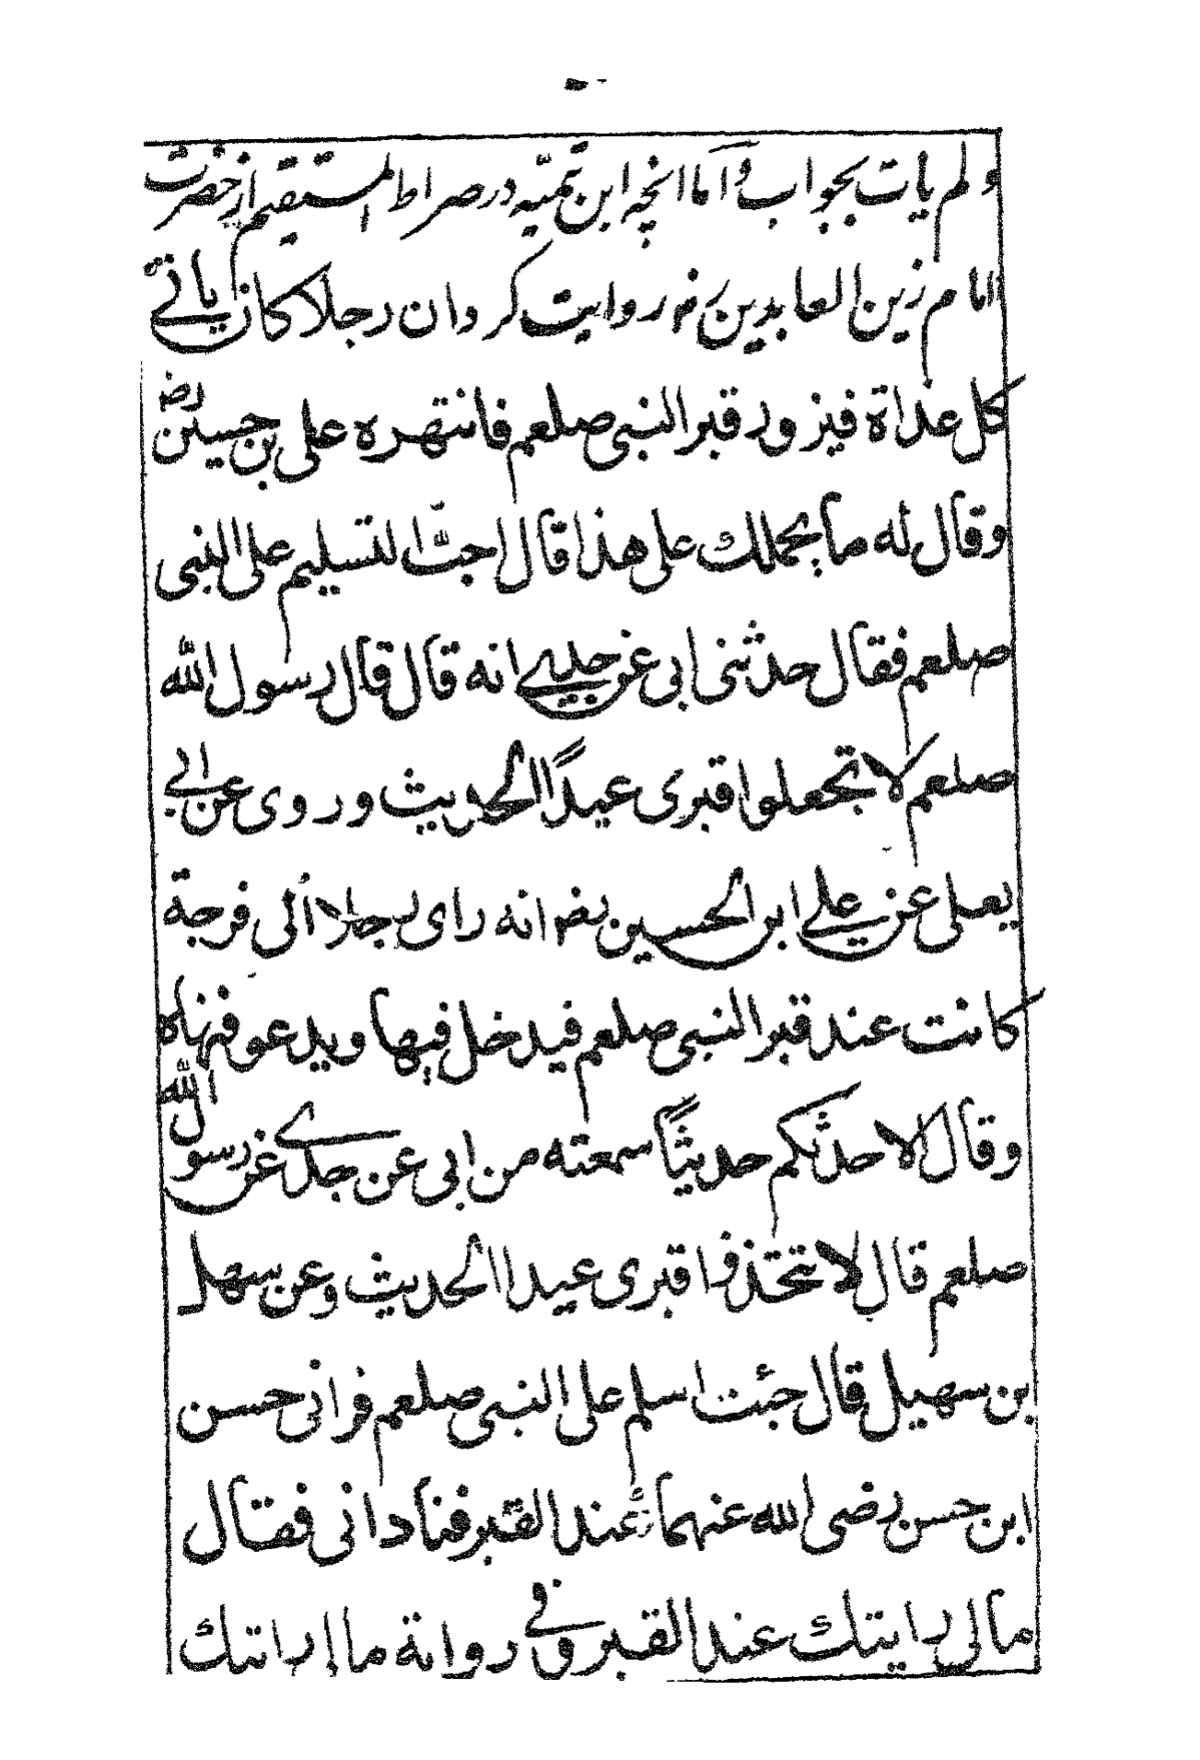 ولم یات بجواب و اما آنچه ابن تیمیّه در صراط المستقیم از حضرت
امام زین العابدین رضہ روایت کرد و ان رجلا کان یاتے
کل غداة فیزور قبر النبی صلعم فانتهره علی بن حسین رضہ
وقال له ما یحملك علی هذا قال احبّ التسلیم علی النبی
صلعم فقال حدثنی ابی عن جدی انه قال قال رسول الله
صلعم لا تجعلوا قبری عیدًا الحدیث و روی عن ابی
یعلی عن علی ابن الحسین رضہ انه رای رجلا اُلی فرجة
کانت عند قبر النبی صلعم فیدخل فیها ویدعو فنهاه
وقال الا احدثکم حدیثًا سمعته من ابی عن جدی عن رسول الله
صلعم قال لا تتخذوا قبری عیدا الحدیث وعن سهل
بن سهیل قال جئت اسلم علی النبی صلعم فرانی حسن
ابن حسن رضی الله عنهما عند القبر فنادانی فقال
مالی رایتك عند القبر وفی روایة ما لی رایتك